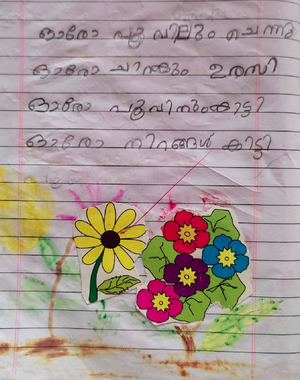 ഓരോ പൂവിലും ചെന്നു
ഓരോ ചിറകും ഉരസി
ഓരോ പൂവിനുംകിട്ടി
ഓരോ നിറങ്ങൾ കിട്ടി